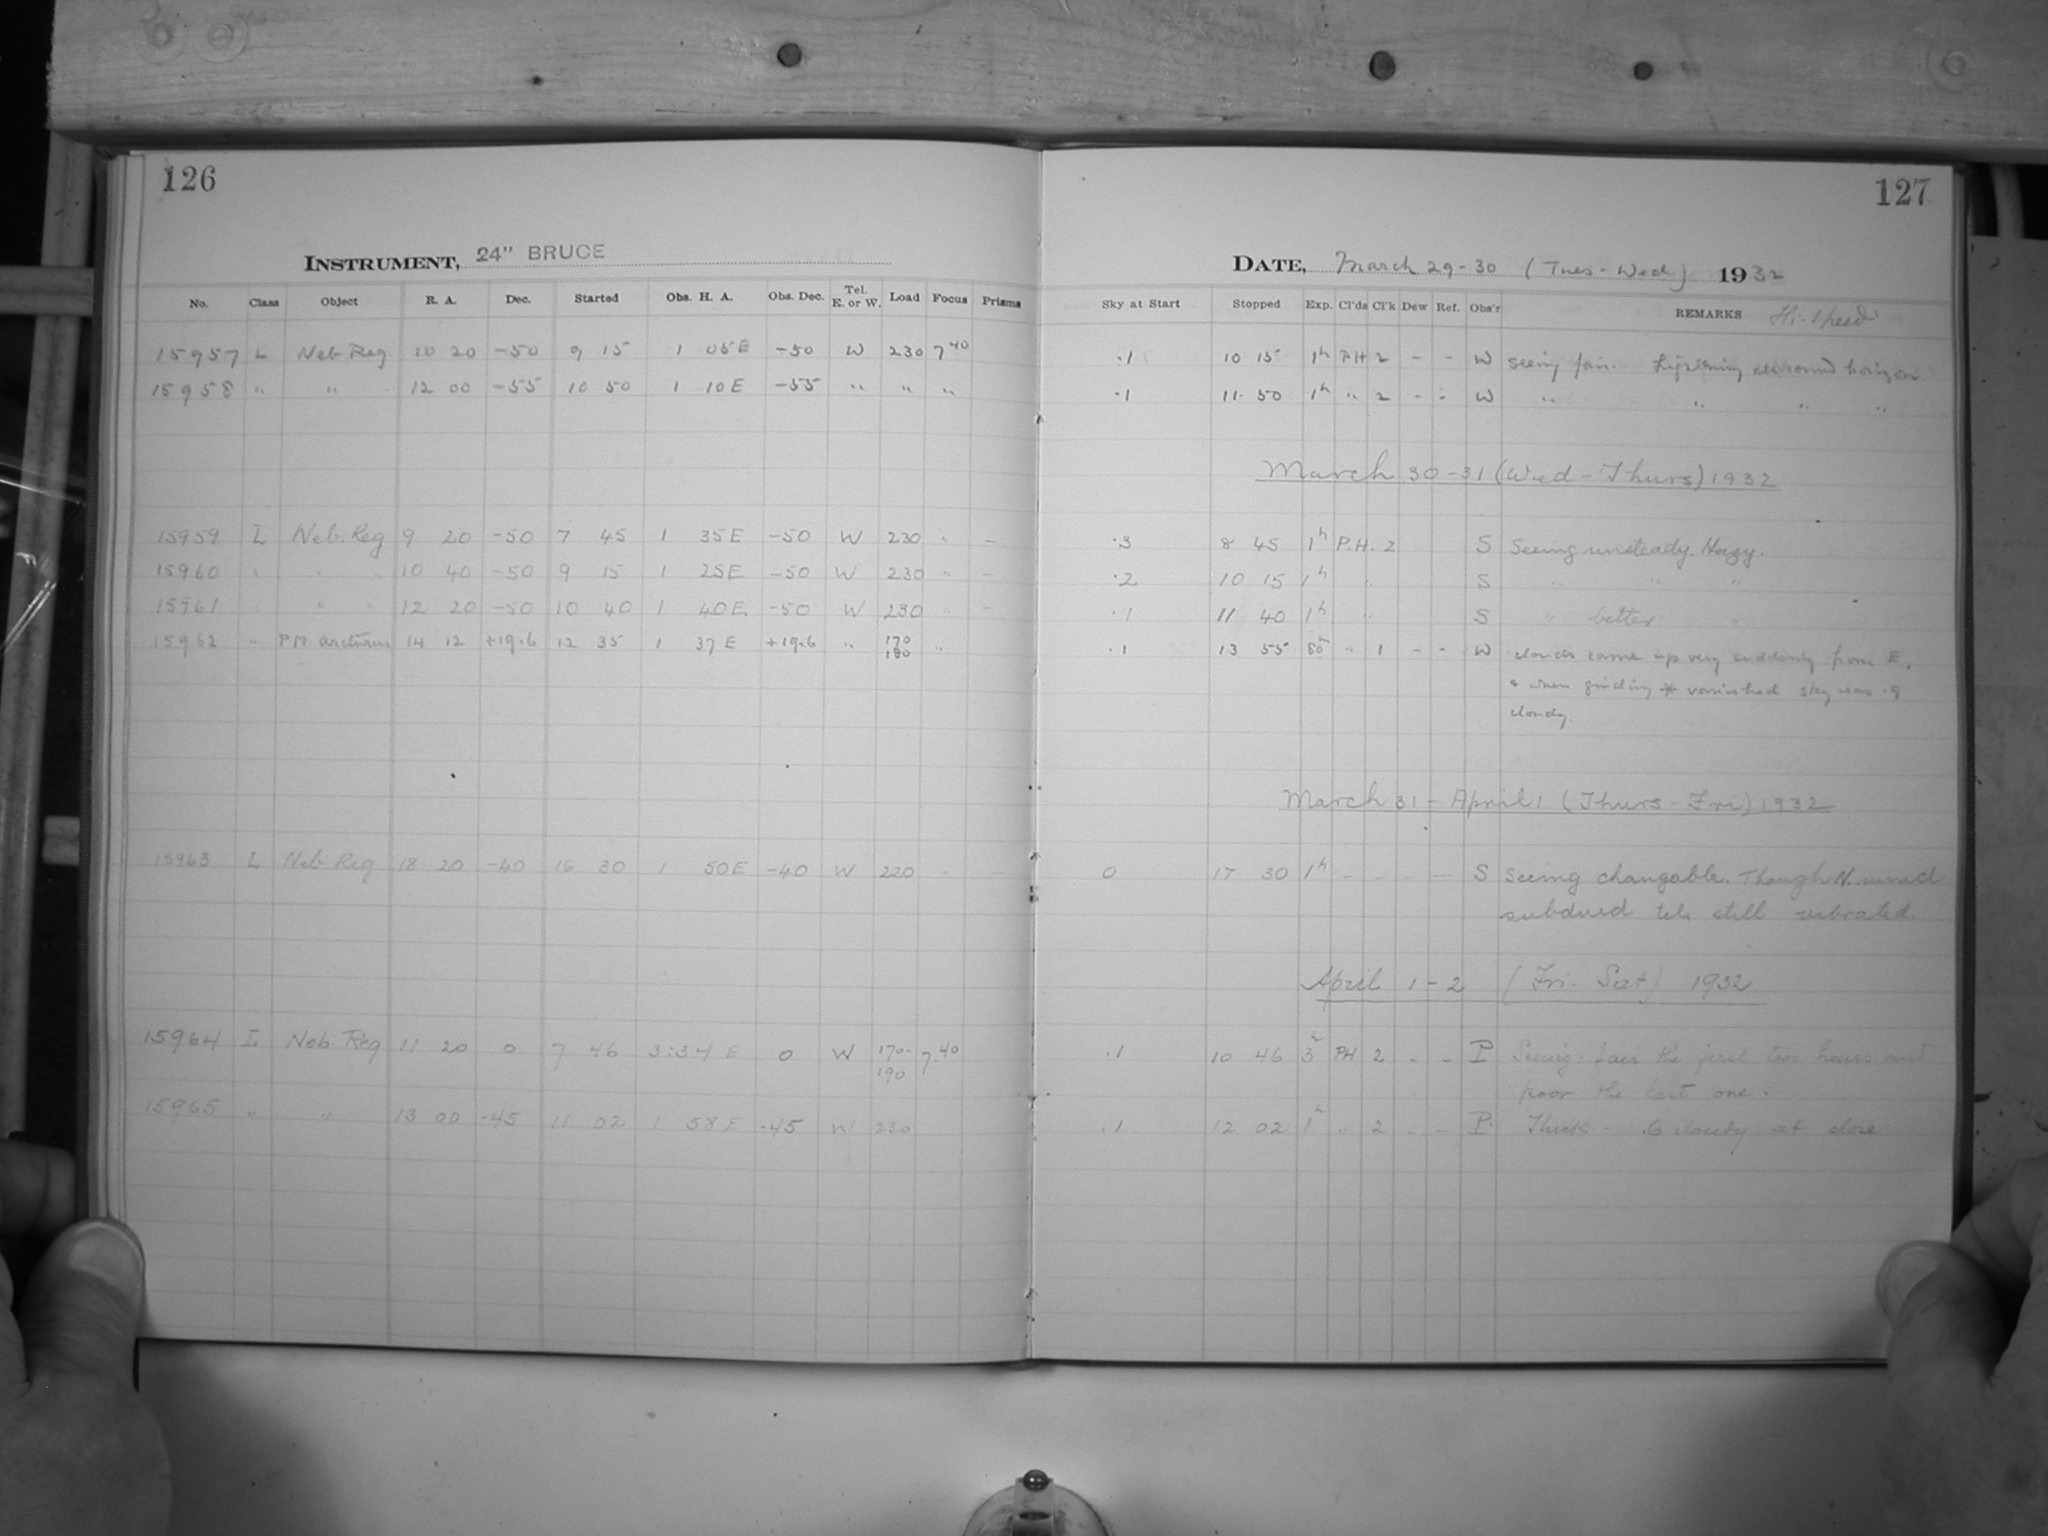 126
127
INSTRUMENT, 24" BRUCE
DATE, March 29-30 (Tues-Wed) 1932
No. Class Object R. A. Dec. Started Obs. H. A. Obs. Dec. Tel. E. or W. Load Focus Prisms Sky at Start Stopped Exp. Cl'ds Cl'k Dew Ref. Obs'r REMARKS Hi-Speed
15957 L Neb. Reg. 10 20 -50 9 15 1 05E -50 W 230 7 40 .1 10 15 1h PH 2 - - W Seeing fair. Lightning all round horizon
15958 " " 12 00 -55 10 50 1 10E -55 " " " .1 11 50 1h " 2 - - W " " " "
March 30-31 (Wed-Thurs) 1932
15959 L Neb. Reg 9 20 -50 7 45 1 35E -50 W 230 " - .3 8 45 1h P.H. 2 S Seeing unsteady. Hazy.
15960 " " " 10 40 -50 9 15 1 25E -50 W 230 " - .2 10 15 1h " S " " "
15961 " " " 12 20 -50 10 40 1 40E -50 W 230 " - .1 11 40 1h " S " better "
15962 " PM arcturus 14 12 +19.6 12 35 1 37E +19.6 " 170 180 " .1 13 55 80m " 1 - - W clouds came up very suddenly from E.
& when guiding * vanished sky was .9
cloudy.
March 31-April 1 (Thurs-Fri) 1932
15963 L Neb Reg 18 20 -40 16 30 1 50E -40 W 220 " - 0 17 30 1h - - - - S Seeing changable. Though N. wind
subdued tel. still vibrated.
April 1-2 (Fri-Sat) 1932
15964 L Neb. Reg 11 20 0 7 46 3:34 E 0 W 170-190 7.40 .1 10 46 3h PH 2 - - P Seeing fair the first two hours and
poor the last one.
15965 " " 13 00 -45 11 02 1 58E -45 W 230 .1 12 02 1h " 2 - - P. Thick - .6 cloudy at close